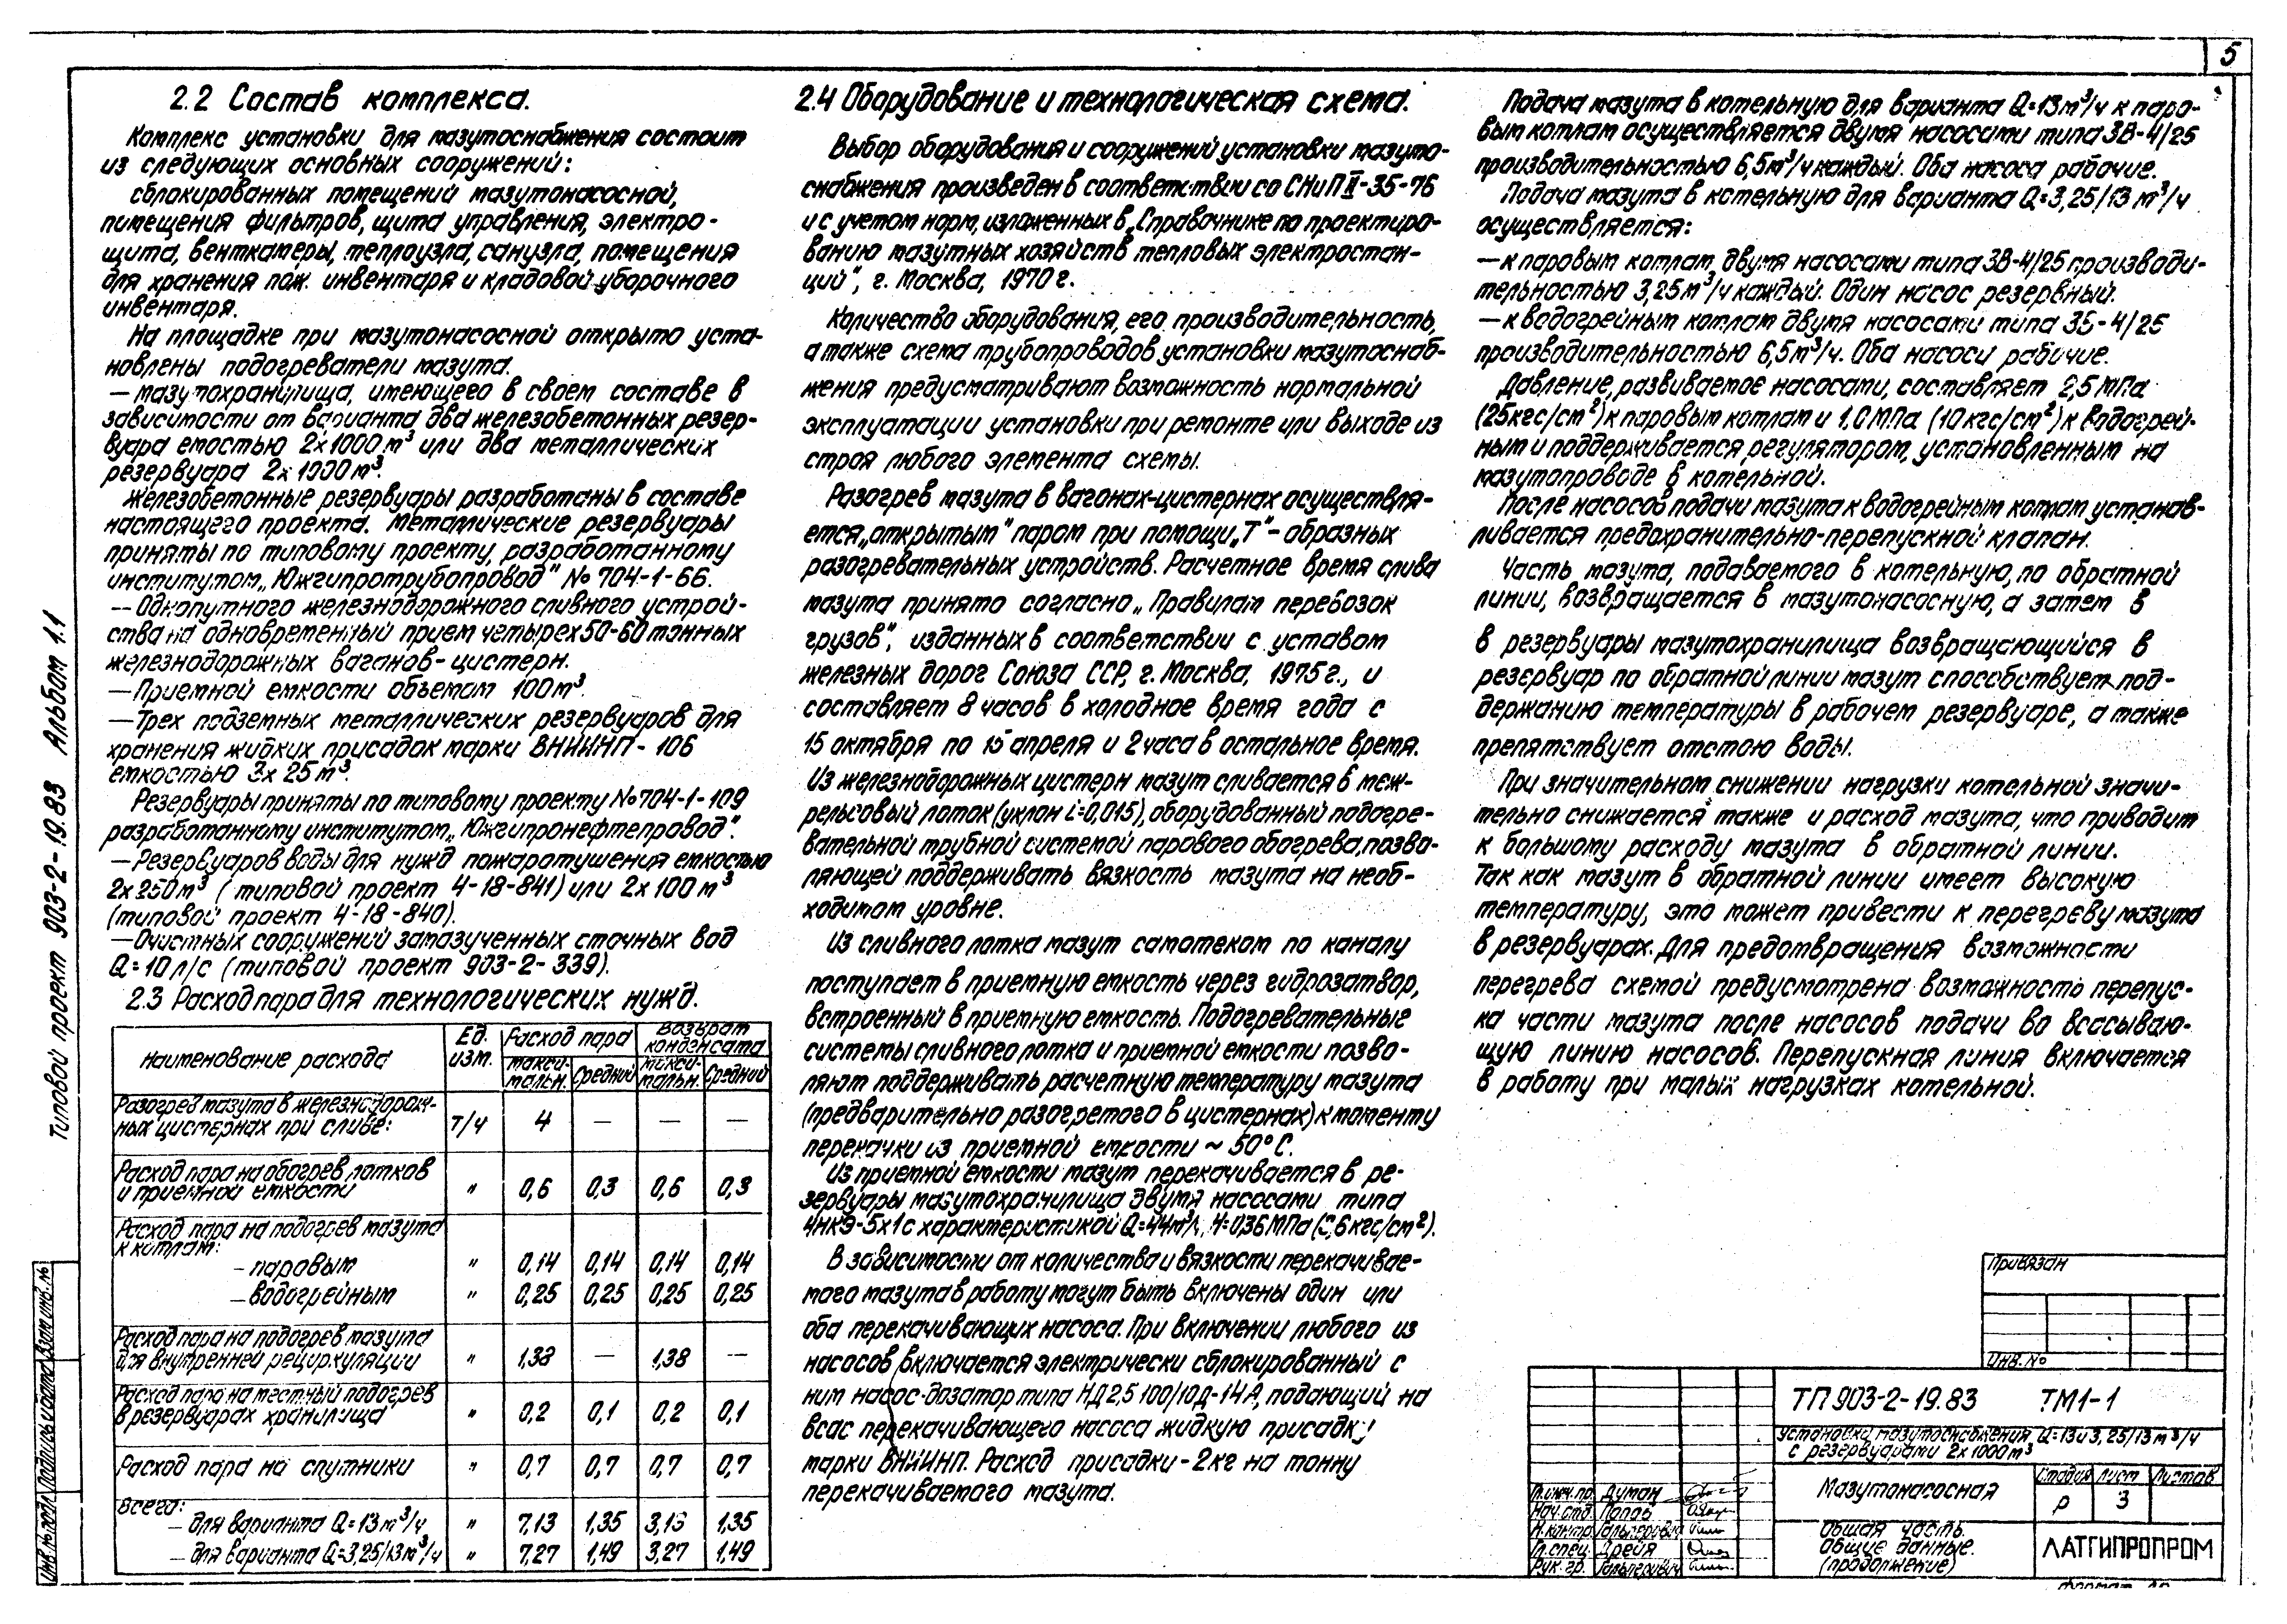 5
2.2 Состав комплекса.
Комплекс установки для мазутоснабжения состоит
из следующих основных сооружений:
сблокированных помещений мазутонасосной,
помещения фильтров, щита управления, электро-
щита, венткамеры, теплоузла, санузла, помещения
для хранения пож. инвентаря и кладовой уборочного
инвентаря.
На площадке при мазутонасосной открыто уста-
новлены подогреватели мазута.
— мазутохранилища, имеющего в своем составе в
зависимости от варианта два железобетонных резер-
вуара емкостью 2х1000м³ или два металлических
резервуара 2х1000м³.
Железобетонные резервуары разработаны в составе
настоящего проекта. Металлические резервуары
приняты по типовому проекту, разработанному
институтом „Южгипротрубопровод" № 704-1-66.
— Однопутного железнодорожного сливного устрой-
ства на одновременный прием четырех 50-60 тонных
железнодорожных вагонов-цистерн.
— Приемной емкости объемом 100м³
— Трех подземных металлических резервуаров для
хранения жидких присадок марки ВНИИНП-106
емкостью 3х25м³.
Резервуары приняты по типовому проекту №704-1-109
разработанному институтом „Южгипронефтепровод".
— Резервуаров воды для нужд пожаротушения емкостью
2х250м³ (типовой проект 4-18-841) или 2х100м³
(типовой проект 4-18-840).
— Очистных сооружений замазученных сточных вод
Q=10 л/с (типовой проект 903-2-339).
2.3 Расход пара для технологических нужд.
Наименование расхода
Ед. изм.
Расход пара
Возврат конденсата
макси-мальн.
Средний
макси-мальн.
Средний
Разогрев мазута в железнодорож-
ных цистернах при сливе: т/ч 4 — — —
Расход пара на обогрев лотков
и приемной емкости " 0,6 0,3 0,6 0,3
Расход пара на подогрев мазута
к котлам:
– паровым " 0,14 0,14 0,14 0,14
– водогрейным " 0,25 0,25 0,25 0,25
Расход пара на подогрев мазута
для внутренней рециркуляции " 1,38 — 1,38 —
Расход пара на местный подогрев
в резервуарах хранилища " 0,2 0,1 0,2 0,1
Расход пара на спутники " 0,7 0,7 0,7 0,7
Всего:
– для варианта Q=13м³/ч " 7,13 1,35 3,13 1,35
– для варианта Q=3,25/13м³/ч " 7,27 1,49 3,27 1,49
2.4 Оборудование и технологическая схема.
Выбор оборудования и сооружений установки мазуто-
снабжения произведен в соответствии со СНиП II-35-76
и с учетом норм, изложенных в „Справочнике по проектиро-
ванию мазутных хозяйств тепловых электростан-
ций", г. Москва, 1970г.
Количество оборудования, его производительность,
а также схема трубопроводов установки мазутоснаб-
жения предусматривают возможность нормальной
эксплуатации установки при ремонте или выходе из
строя любого элемента схемы.
Разогрев мазута в вагонах-цистернах осуществля-
ется „открытым" паром при помощи „Т"-образных
разогревательных устройств. Расчетное время слива
мазута принято согласно „Правилам перевозок
грузов", изданных в соответствии с уставом
железных дорог Союза ССР, г. Москва, 1975г., и
составляет 8 часов в холодное время года с
15 октября по 15 апреля и 2 часа в остальное время.
Из железнодорожных цистерн мазут сливается в меж-
рельсовый лоток (уклон i=0,015), оборудованный подогре-
вательной трубной системой парового обогрева, позво-
ляющей поддерживать вязкость мазута на необ-
ходимом уровне.
Из сливного лотка мазут самотеком по каналу
поступает в приемную емкость через гидрозатвор,
встроенный в приемную емкость. Подогревательные
системы сливного лотка и приемной емкости позво-
ляют поддерживать расчетную температуру мазута
(предварительно разогретого в цистернах) к моменту
перекачки из приемной емкости ~ 50°С.
Из приемной емкости мазут перекачивается в ре-
зервуары мазутохранилища двумя насосами типа
4НКЭ-5х1 с характеристикой Q=44м³/ч, H=0,36 МПа (3,6 кгс/см²).
В зависимости от количества и вязкости перекачивае-
мого мазута в работу могут быть включены один или
оба перекачивающих насоса. При включении любого из
насосов включается электрически сблокированный с
ним насос-дозатор типа НД 2,5 100/10Д-14А, подающий на
всас перекачивающего насоса жидкую присадку
марки ВНИИНП. Расход присадки – 2кг на тонну
перекачиваемого мазута.
Подача мазута в котельную для варианта Q=13м³/ч к паро-
вым котлам осуществляется двумя насосами типа 3В-4/25
производительностью 6,5м³/ч каждый. Оба насоса рабочие.
Подача мазута в котельную для варианта Q=3,25/13 м³/ч
осуществляется:
— к паровым котлам двумя насосами типа 3В-4/25 производи-
тельностью 3,25м³/ч каждый. Один насос резервный.
— к водогрейным котлам двумя насосами типа 3Б-4/25
производительностью 6,5м³/ч. Оба насоса рабочие.
Давление, развиваемое насосами, составляет 2,5 МПа
(25кгс/см²) к паровым котлам и 1,0 МПа (10 кгс/см²) к водогрей-
ным и поддерживается регулятором, установленным на
мазутопроводе в котельной.
После насосов подачи мазута к водогрейным котлам устанав-
ливается предохранительно-перепускной клапан.
Часть мазута, подаваемого в котельную, по обратной
линии, возвращается в мазутонасосную, а затем в
в резервуары мазутохранилища возвращающийся в
резервуар по обратной линии мазут способствует под-
держанию температуры в рабочем резервуаре, а также
препятствует отстою воды.
При значительном снижении нагрузки котельной значи-
тельно снижается также и расход мазута, что приводит
к большому расходу мазута в обратной линии.
Так как мазут в обратной линии имеет высокую
температуру, это может привести к перегреву мазута
в резервуарах. Для предотвращения возможности
перегрева схемой предусмотрена возможность перепус-
ка части мазута после насосов подачи во всасываю-
щую линию насосов. Перепускная линия включается
в работу при малых нагрузках котельной.
Привязан
Инв. №
ТП 903-2-19.83 ТМ1-1
Установка мазутоснабжения Q=13 и 3,25/13 м³/ч
с резервуарами 2х1000м³
Мазутонасосная
Стадия Лист Листов
Р 3
Общая часть.
Общие данные.
(продолжение)
ЛАТГИПРОПРОМ
Гл.инж.пр. Думан
Нач.отд. Попов
Н.контр. Гальперович
Гл.спец. Дрейя
Рук.гр. Гальперович
Типовой проект 903-2-19.83 Альбом 1.1
Инв.№ подл. Подпись и дата Взам.инв.№